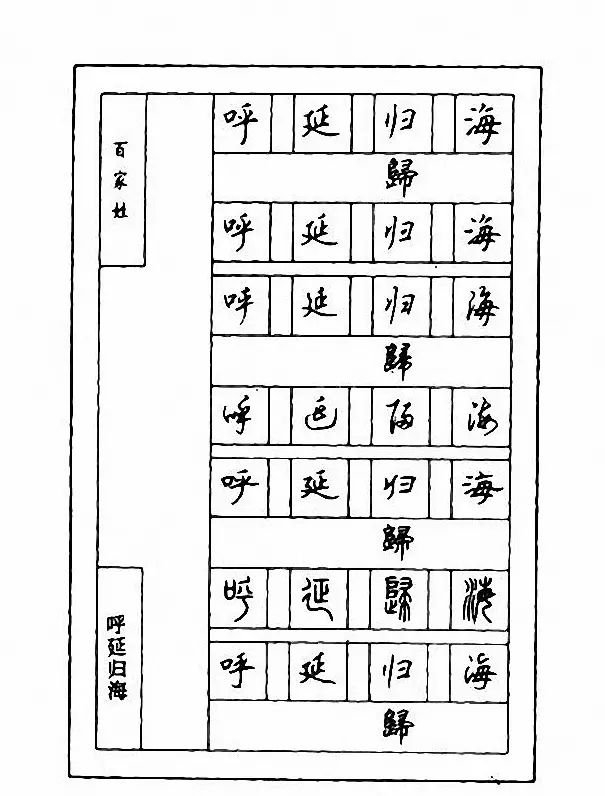 百家姓
呼延归海
呼 延 归 海
歸
呼 延 归 海
呼 延 归 海
歸
呼 延 归 海
呼 延 归 海
歸
呼 延 歸 海
呼 延 归 海
歸